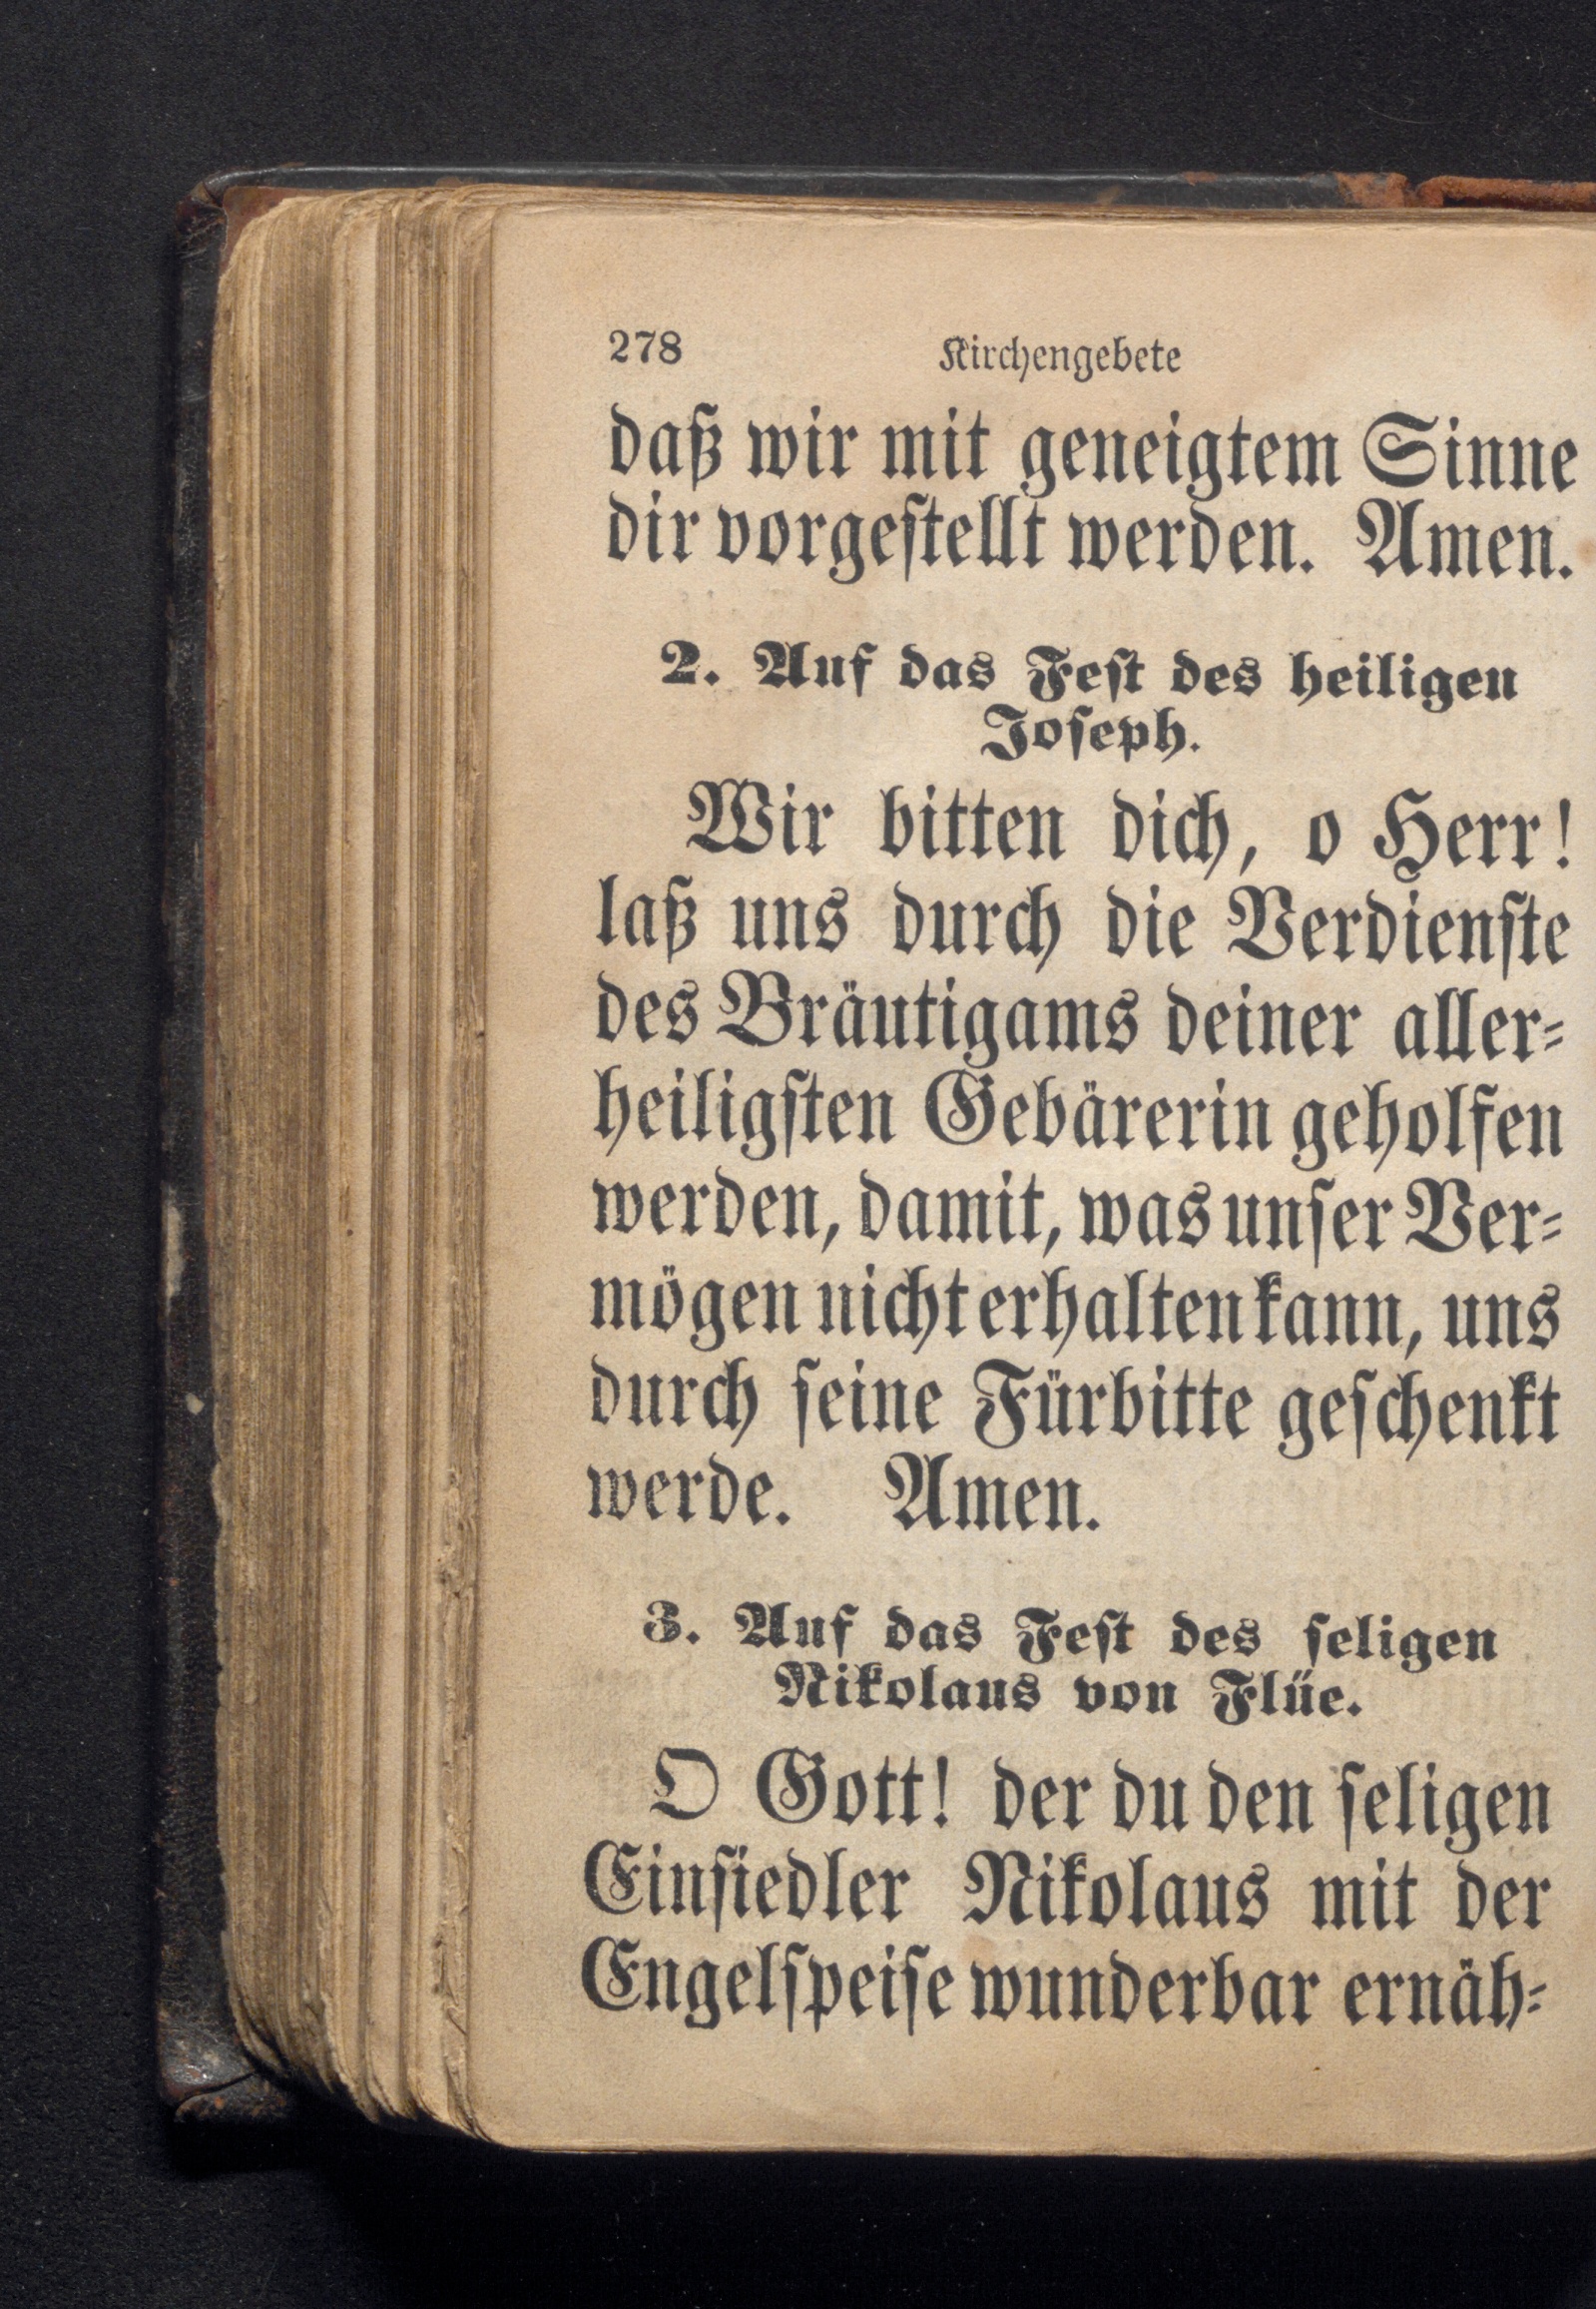 278 Kirchengebete
daß wir mit geneigtem Sinne
dir vorgeſtellt werden. Amen.
2. Auf das Feſt des heiligen
Joſeph.
Wir bitten dich, o Herr!
laß uns durch die Verdienſte
des Bräutigams deiner aller⸗
heiligſten Gebärerin geholfen
werden, damit, was unſer Ver⸗
mögen nicht erhalten kann, uns
durch ſeine Fürbitte geſchenkt
werde. Amen.
3. Auf das Feſt des ſeligen
Nikolaus von Flüe.
O Gott! der du den ſeligen
Einſiedler Nikolaus mit der
Engelſpeiſe wunderbar ernäh⸗